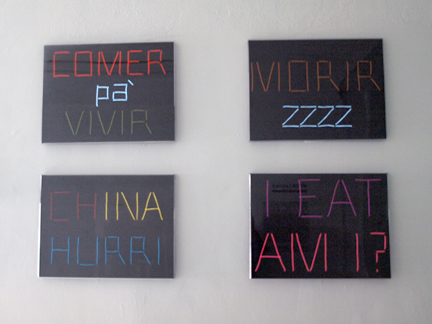 COMER
pà
VIVIR
MORIR
ZZZZ
CHINA
HURRI
I EAT
AM I?